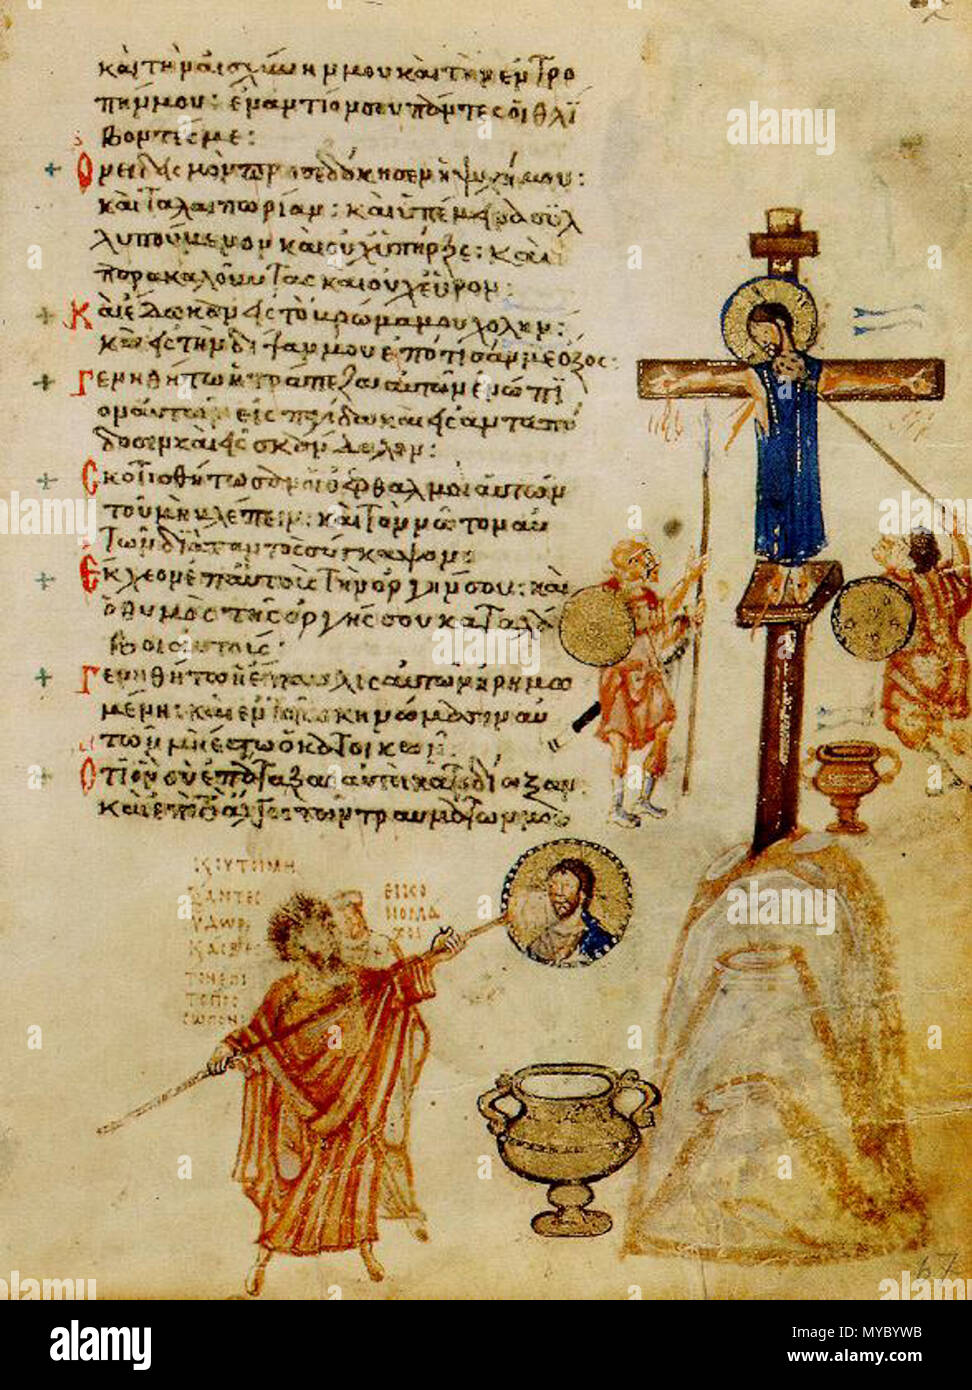 καὶ τὴν αἰσχύνην μου καὶ τὴν ἐντρο
πήν μου: ἐναντίον σου πάντες οἱ θλί
βοντές με:
Ὀνειδισμὸν προσεδόκησεν ἡ ψυχή μου:
καὶ ταλαιπωρίαν: καὶ ὑπέμεινα συλ
λυπούμενον καὶ οὐχ ὑπῆρξε: καὶ
παρακαλοῦντας καὶ οὐχ εὗρον:
Καὶ ἔδωκαν εἰς τὸ βρῶμά μου χολὴν:
καὶ εἰς τὴν δίψαν μου ἐπότισάν με ὄξος:
Γενηθήτω ἡ τράπεζα αὐτῶν ἐνώπι
ον αὐτῶν εἰς παγίδα καὶ εἰς ἀνταπό
δοσιν καὶ εἰς σκάνδαλον:
Σκοτισθήτωσαν οἱ ὀφθαλμοὶ αὐτῶν
τοῦ μὴ βλέπειν: καὶ τὸν νῶτον αὐ
τῶν διὰ παντὸς σύγκαμψον:
Ἔκχεον ἐπ αὐτοὺς τὴν ὀργήν σου: καὶ
ὁ θυμὸς τῆς ὀργῆς σου καταλά
βοι αὐτούς:
Γενηθήτω ἡ ἔπαυλις αὐτῶν ἠρημω
μένη: καὶ ἐν τοῖς σκηνώμασιν αὐ
τῶν μὴ ἔστω ὁ κατοικῶν:
Ὅτι ὃν σὺ ἐπάταξας αὐτοὶ κατεδίωξαν
καὶ ἐπὶ τὸ ἄλγος τῶν τραυμάτων μου
ΞΑΝΤΕΣ
ΥΔΩΡ
ΤΟΝ ΕΠΙ
ΤΟ ΠΡΟ
ΣΩΠΟΝ
ΕΙΚΟ
ΝΟΜΑ
ΧΟΙ
67
alamy
Image ID: MYBYWB
www.alamy.com